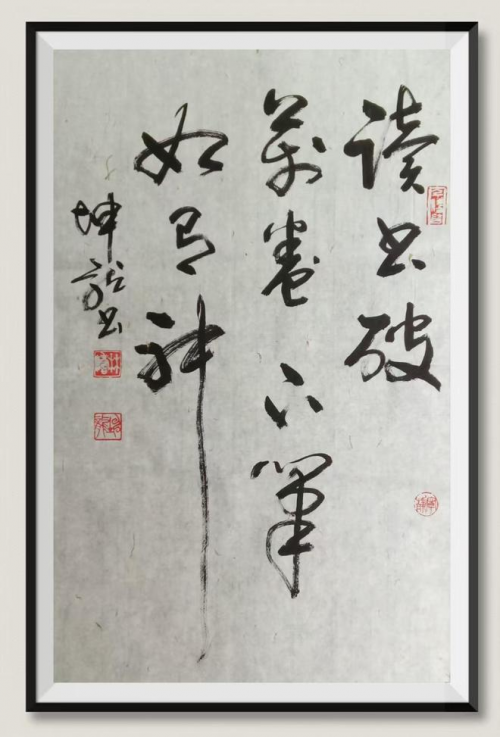 读书破
万卷下笔
如有神
坤龙书